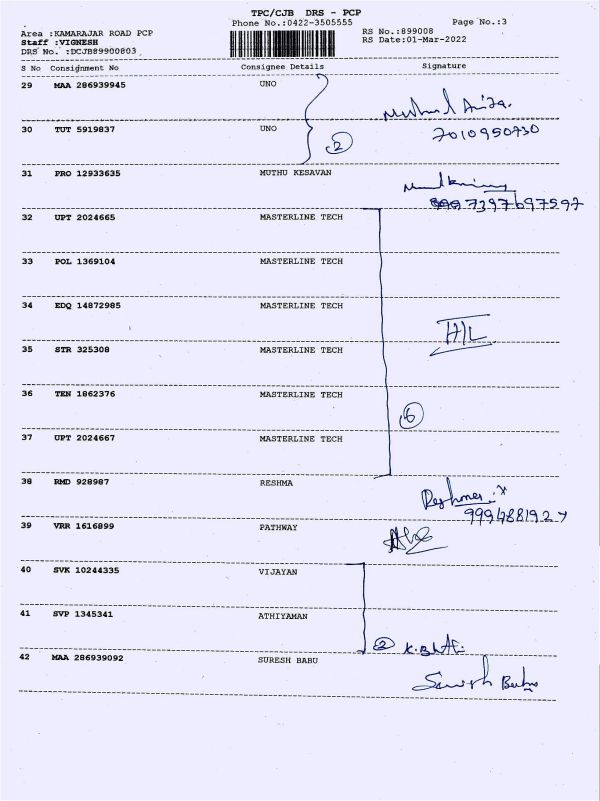 TPC/CJB DRS - PCP
Phone No.:0422-3505555 Page No.:3
Area :KAMARAJAR ROAD PCP RS No.:899008
Staff :VIGNESH RS Date:01-Mar-2022
DRS No. :DCJB89900803
S No Consignment No Consignee Details Signature
29 MAA 286939945 UNO
30 TUT 5919837 UNO 7010950730
2
31 PRO 12933635 MUTHU KESAVAN
7397697597
32 UPT 2024665 MASTERLINE TECH
33 POL 1369104 MASTERLINE TECH
34 EDQ 14872985 MASTERLINE TECH
35 STR 325308 MASTERLINE TECH
36 TEN 1862376 MASTERLINE TECH
6
37 UPT 2024667 MASTERLINE TECH
38 RMD 928987 RESHMA
9994881927
39 VRR 1616899 PATHWAY
40 SVK 10244335 VIJAYAN
41 SVP 1345341 ATHIYAMAN
2
42 MAA 286939092 SURESH BABU
Suresh Babu